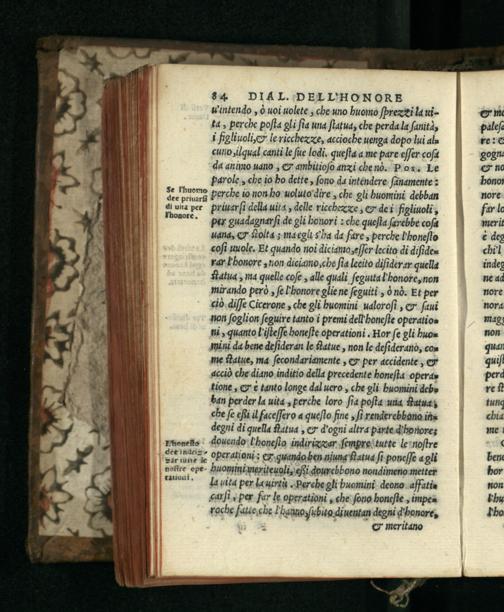 84 DIAL. DELL'HONORE
u'intendo, ò uoi uolete, che uno huomo sprezzi la ui-
ta, perche posta gli sia una statua, che perda la sanità,
i figliuoli, & le ricchezze, accioche uenga dopo lui al-
cuno, ilqual canti le sue lodi. questa a me pare esser cosa
da animo uano, & ambitioso anzi che nò. Pos. Le
parole, che io ho dette, sono da intendere sanamente:
perche io non ho uoluto dire, che gli huomini debban
priuarsi della uita, delle ricchezze, & de i figliuoli,
per guadagnarsi de gli honori: che questa sarebbe cosa
uana, & stolta; ma egli s'ha da fare, perche l'honesto
cosi uuole. Et quando noi diciamo, esser lecito di diside-
rar l'honore, non diciamo, che sia lecito disiderar quella
statua, ma quelle cose, alle quali seguita l'honore, non
mirando però, se l'honore glie ne seguiti, ò nò. Et per
ciò disse Cicerone, che gli huomini ualorosi, & saui
non soglion seguire tanto i premi dell'honeste operatio-
ni, quanto l'istesse honeste operationi. Hor se gli huo-
mini da bene desideran le statue, non le desiderano, co-
me statue, ma secondariamente, & per accidente, &
acciò che diano inditio della precedente honesta opera-
tione, & è tanto longe dal uero, che gli huomini deb-
ban perder la uita, perche loro sia posta una statua,
che se eßi il facessero a questo fine, si renderebbono in-
degni di quella statua, & d'ogni altra parte d'honore;
douendo l'honesto indirizzar sempre tutte le nostre
operationi: & quando ben niuna statua si ponesse a gli
huomini meriteuoli, eßi dourebbono nondimeno metter
la uita per la uirtù. Perche gli huomini deono affati-
carsi, per far le operationi, che sono honeste, impe-
roche fatte che l'hanno, subito diuentan degni d'honore,
& meritano
Se l'huomo
dee priuarsi
di uita per
l'honore.
L'honesto
dee indriz-
zar tutte le
nostre ope-
rationi.